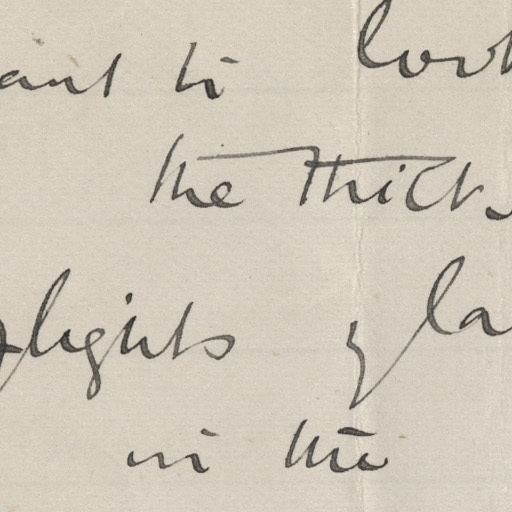 to look
the thick
lights of la
in the